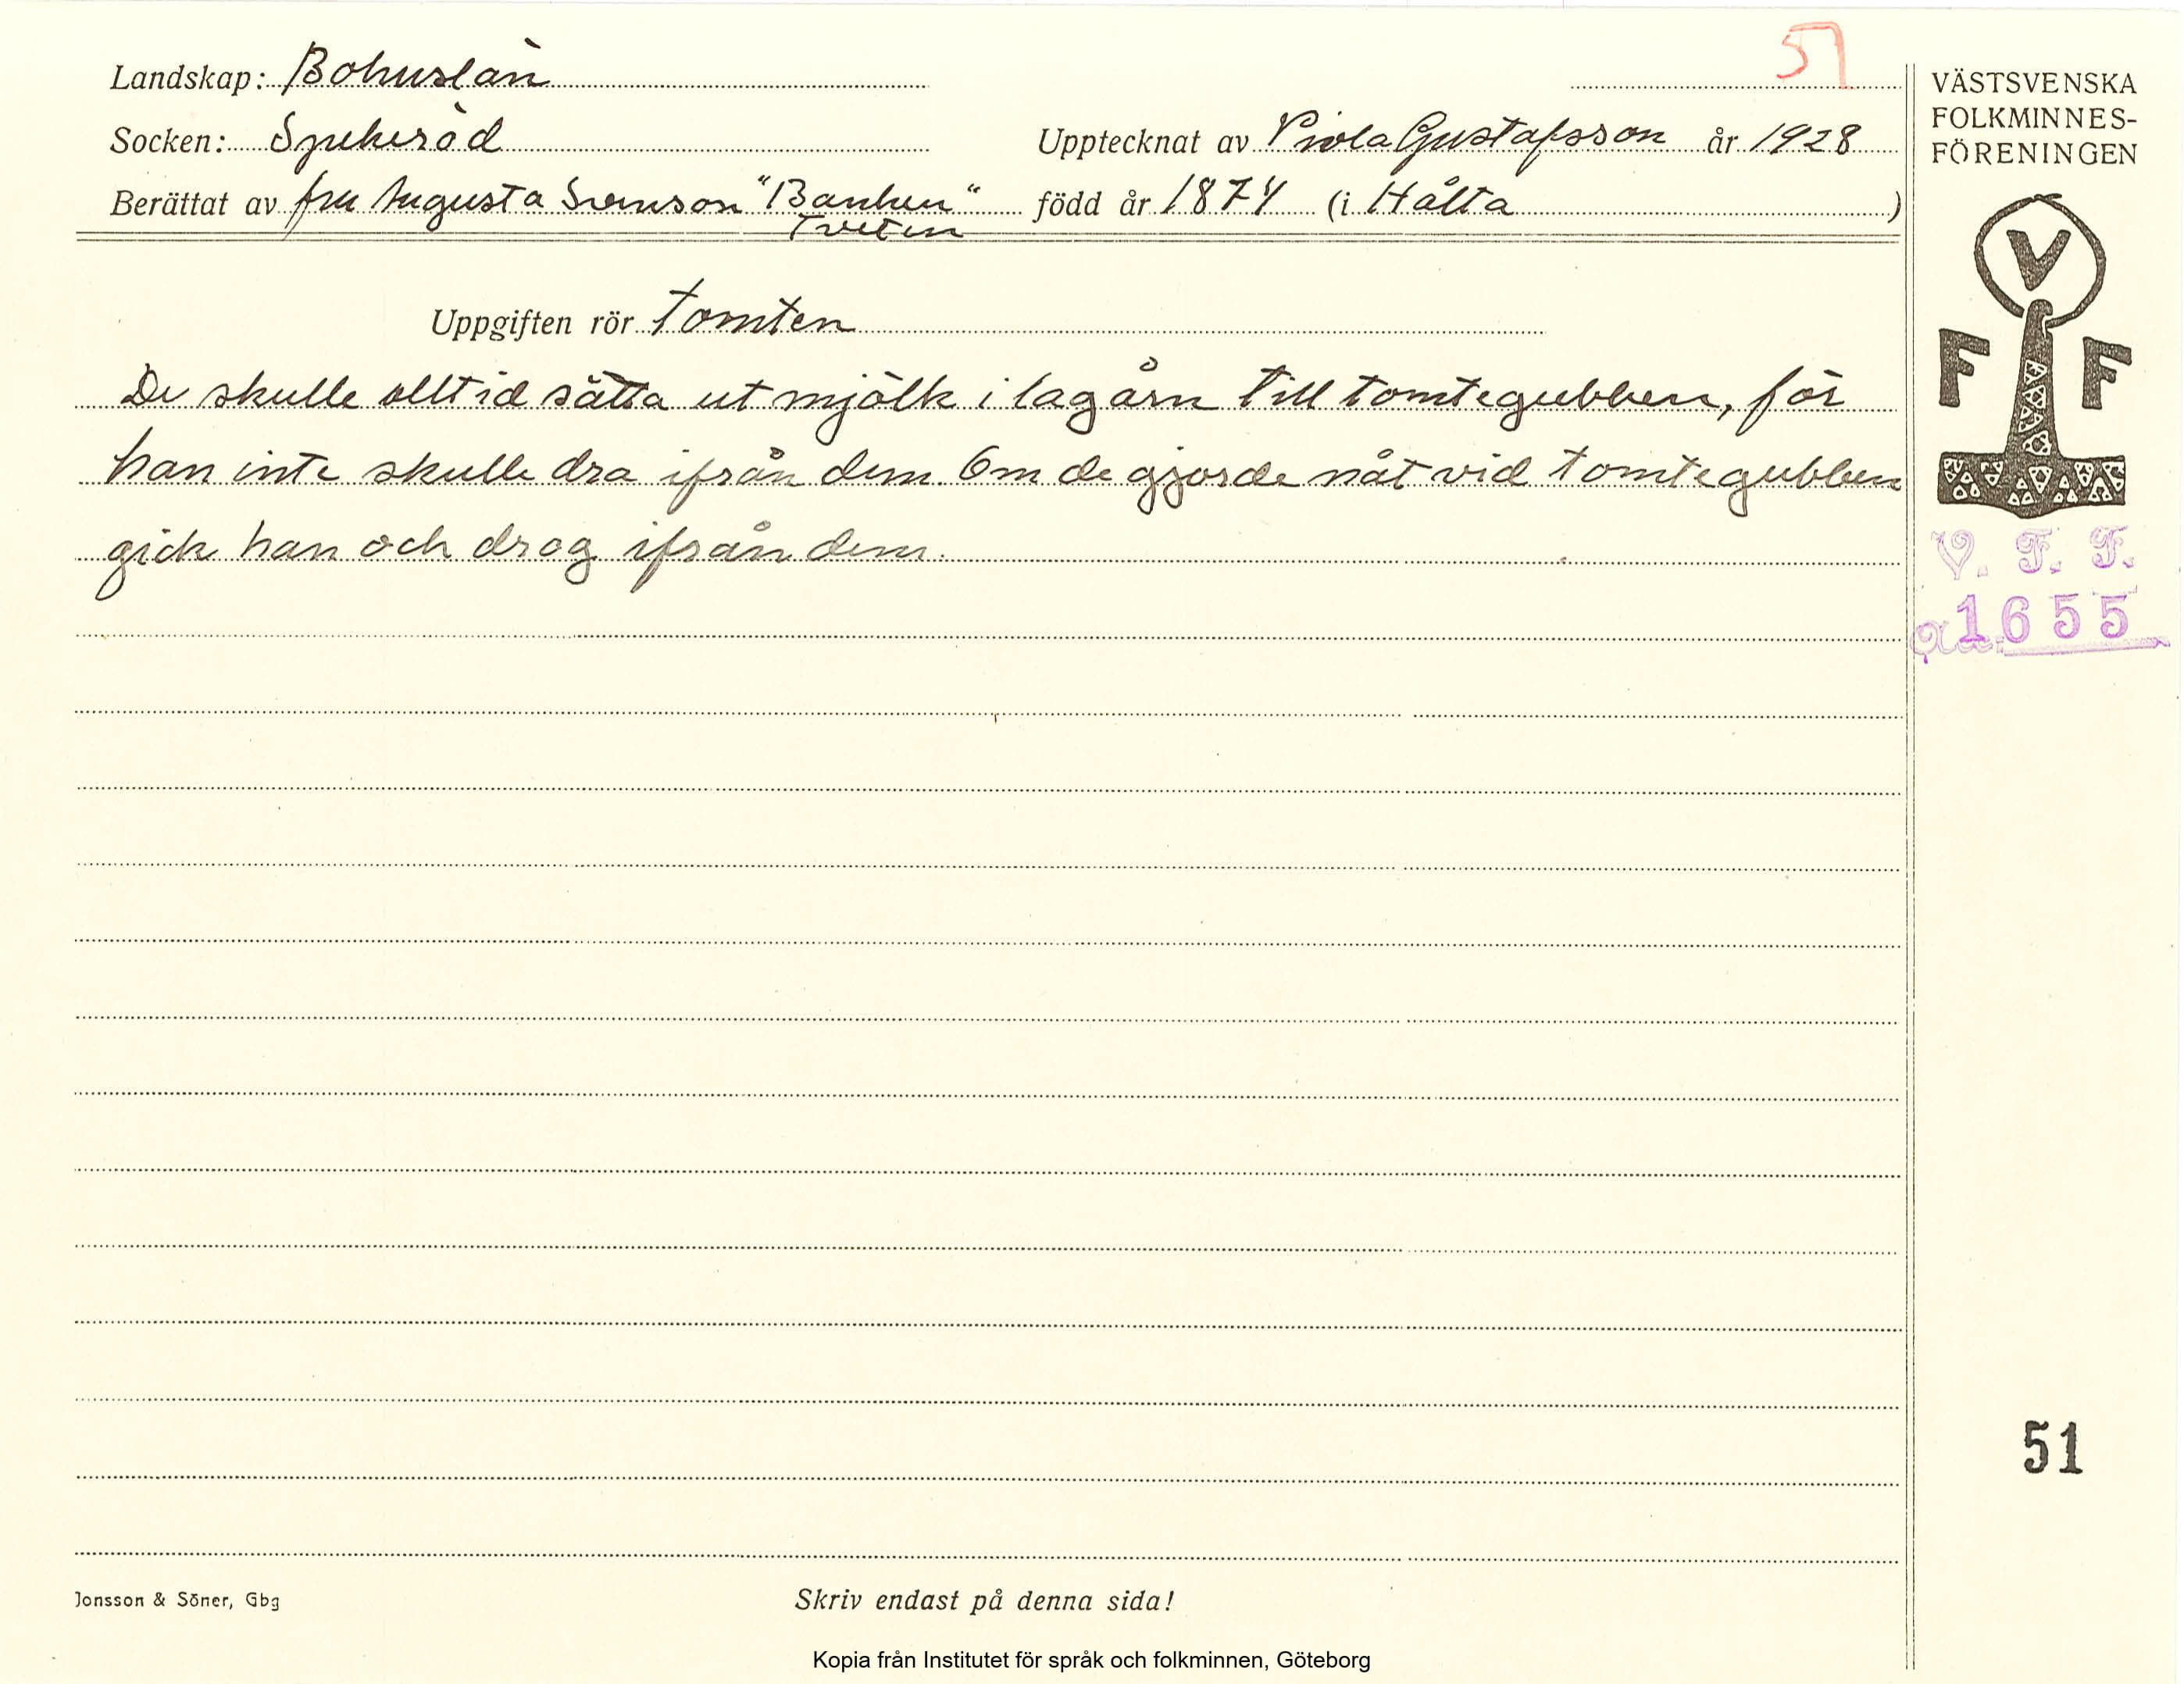 51
Landskap: Bohuslän
Socken: Spekeröd
Upptecknat av Viola Gustafsson år 1928
Berättat av fru Augusta Svenson "Banken" född år 1874 (i Hålta)
Tveten
VÄSTSVENSKA
FOLKMINNES-
FÖRENINGEN
V
F F
Uppgiften rör tomten
De skulle alltid sätta ut mjölk i lagårn till tomtegubben, för
han inte skulle dra ifrån dem. Om de gjorde nåt vid tomtegubben
gick han och drog ifrån dem.
V. F. F.
1655
51
Jonsson & Söner, Gbg
Skriv endast på denna sida!
Kopia från Institutet för språk och folkminnen, Göteborg